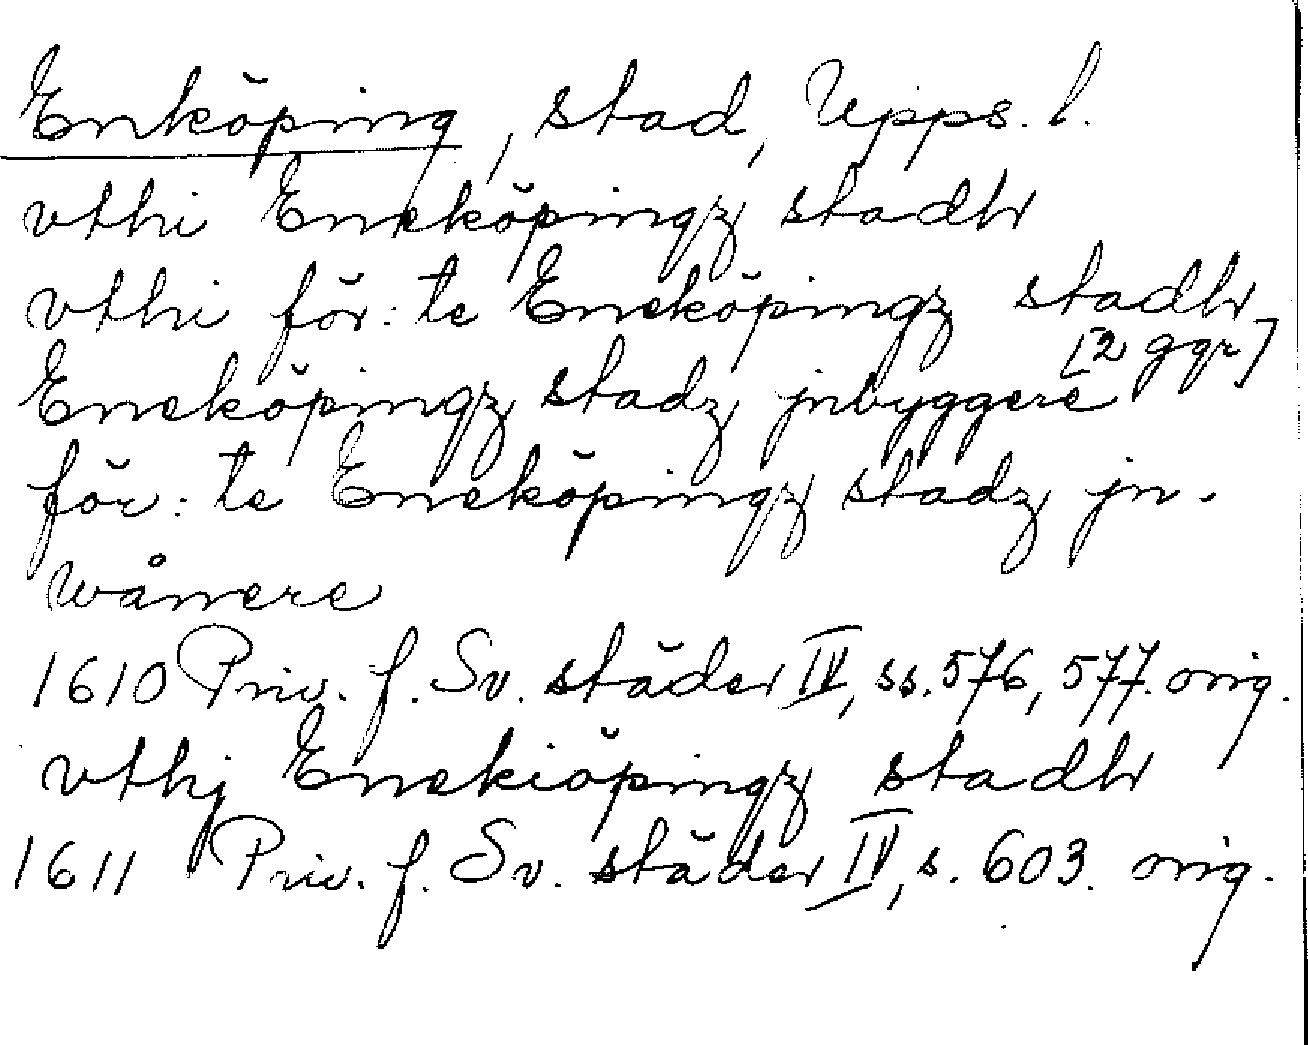 Enköping, stad, Upps. l.
vthi Eneköpingz stadh
vthi för: te Eneköpingz stadh
[2 ggr]
Eneköpingz stadz jnbyggere
för: te Eneköpingz stadz jn-
wånere
1610 Priv. f. Sv. städer IV, ss. 576, 577. orig.
vthj Enekiöpingz stadh
1611 Priv. f. Sv. städer IV, s. 603. orig.